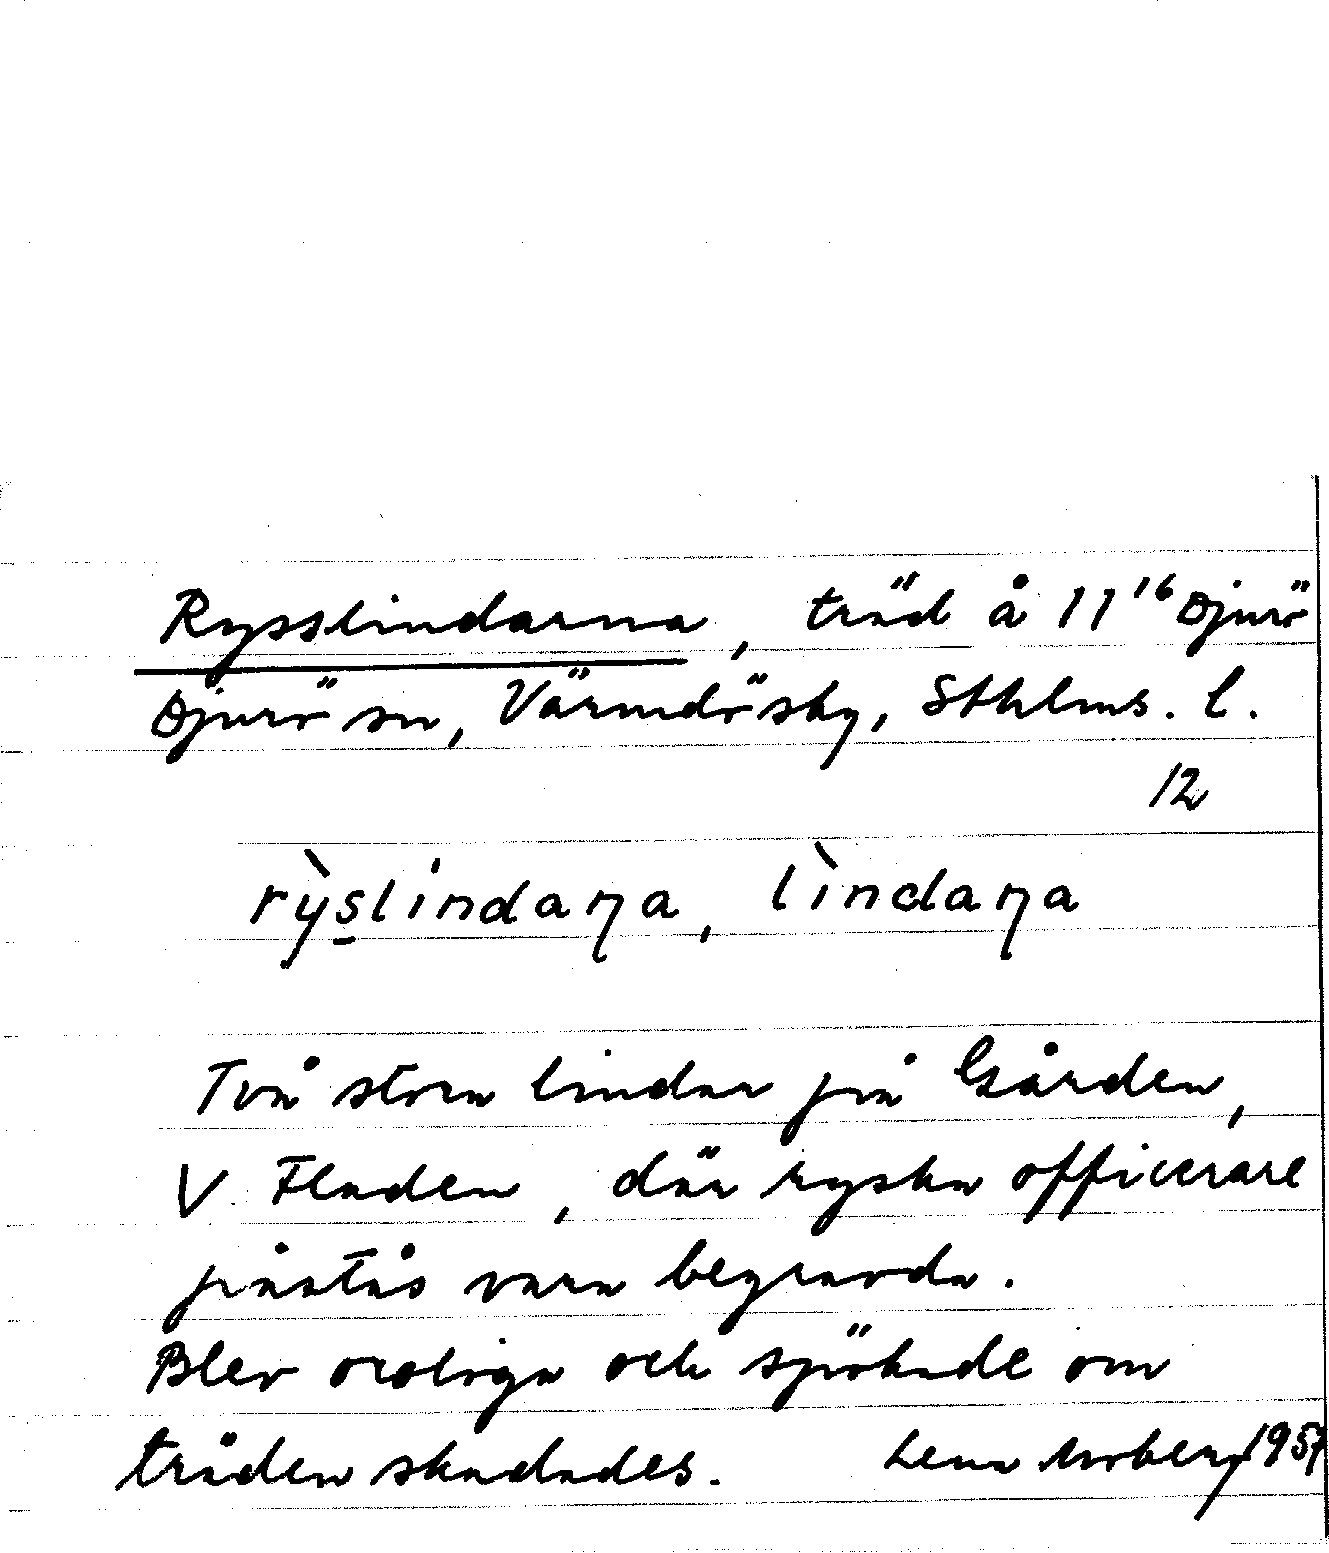 Rysslindarna, träd å 11¹⁶ Djurö
Djurö sn, Värmdö sky, Sthlms. l.
12
rỳs̱lindaɳa, lìndaɳa
Två stora lindar på Gården,
V Fladen, där ryska officerare
påstås vara begravda.
Blev oroliga och spökade om
träden skadades. Lena Moberg 1957